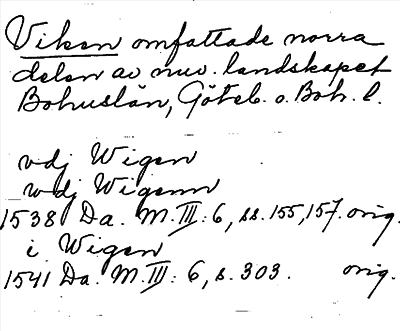 Viken omfattade norra
delen av nuv. landskapet
Bohuslän, Göteb. o. Boh. l.
vdj Wigen
wdj Wigenn
1538 Da. M. III: 6, ss. 155, 157. orig.
i Wigen
1541 Da. M. III: 6, s. 303. orig.